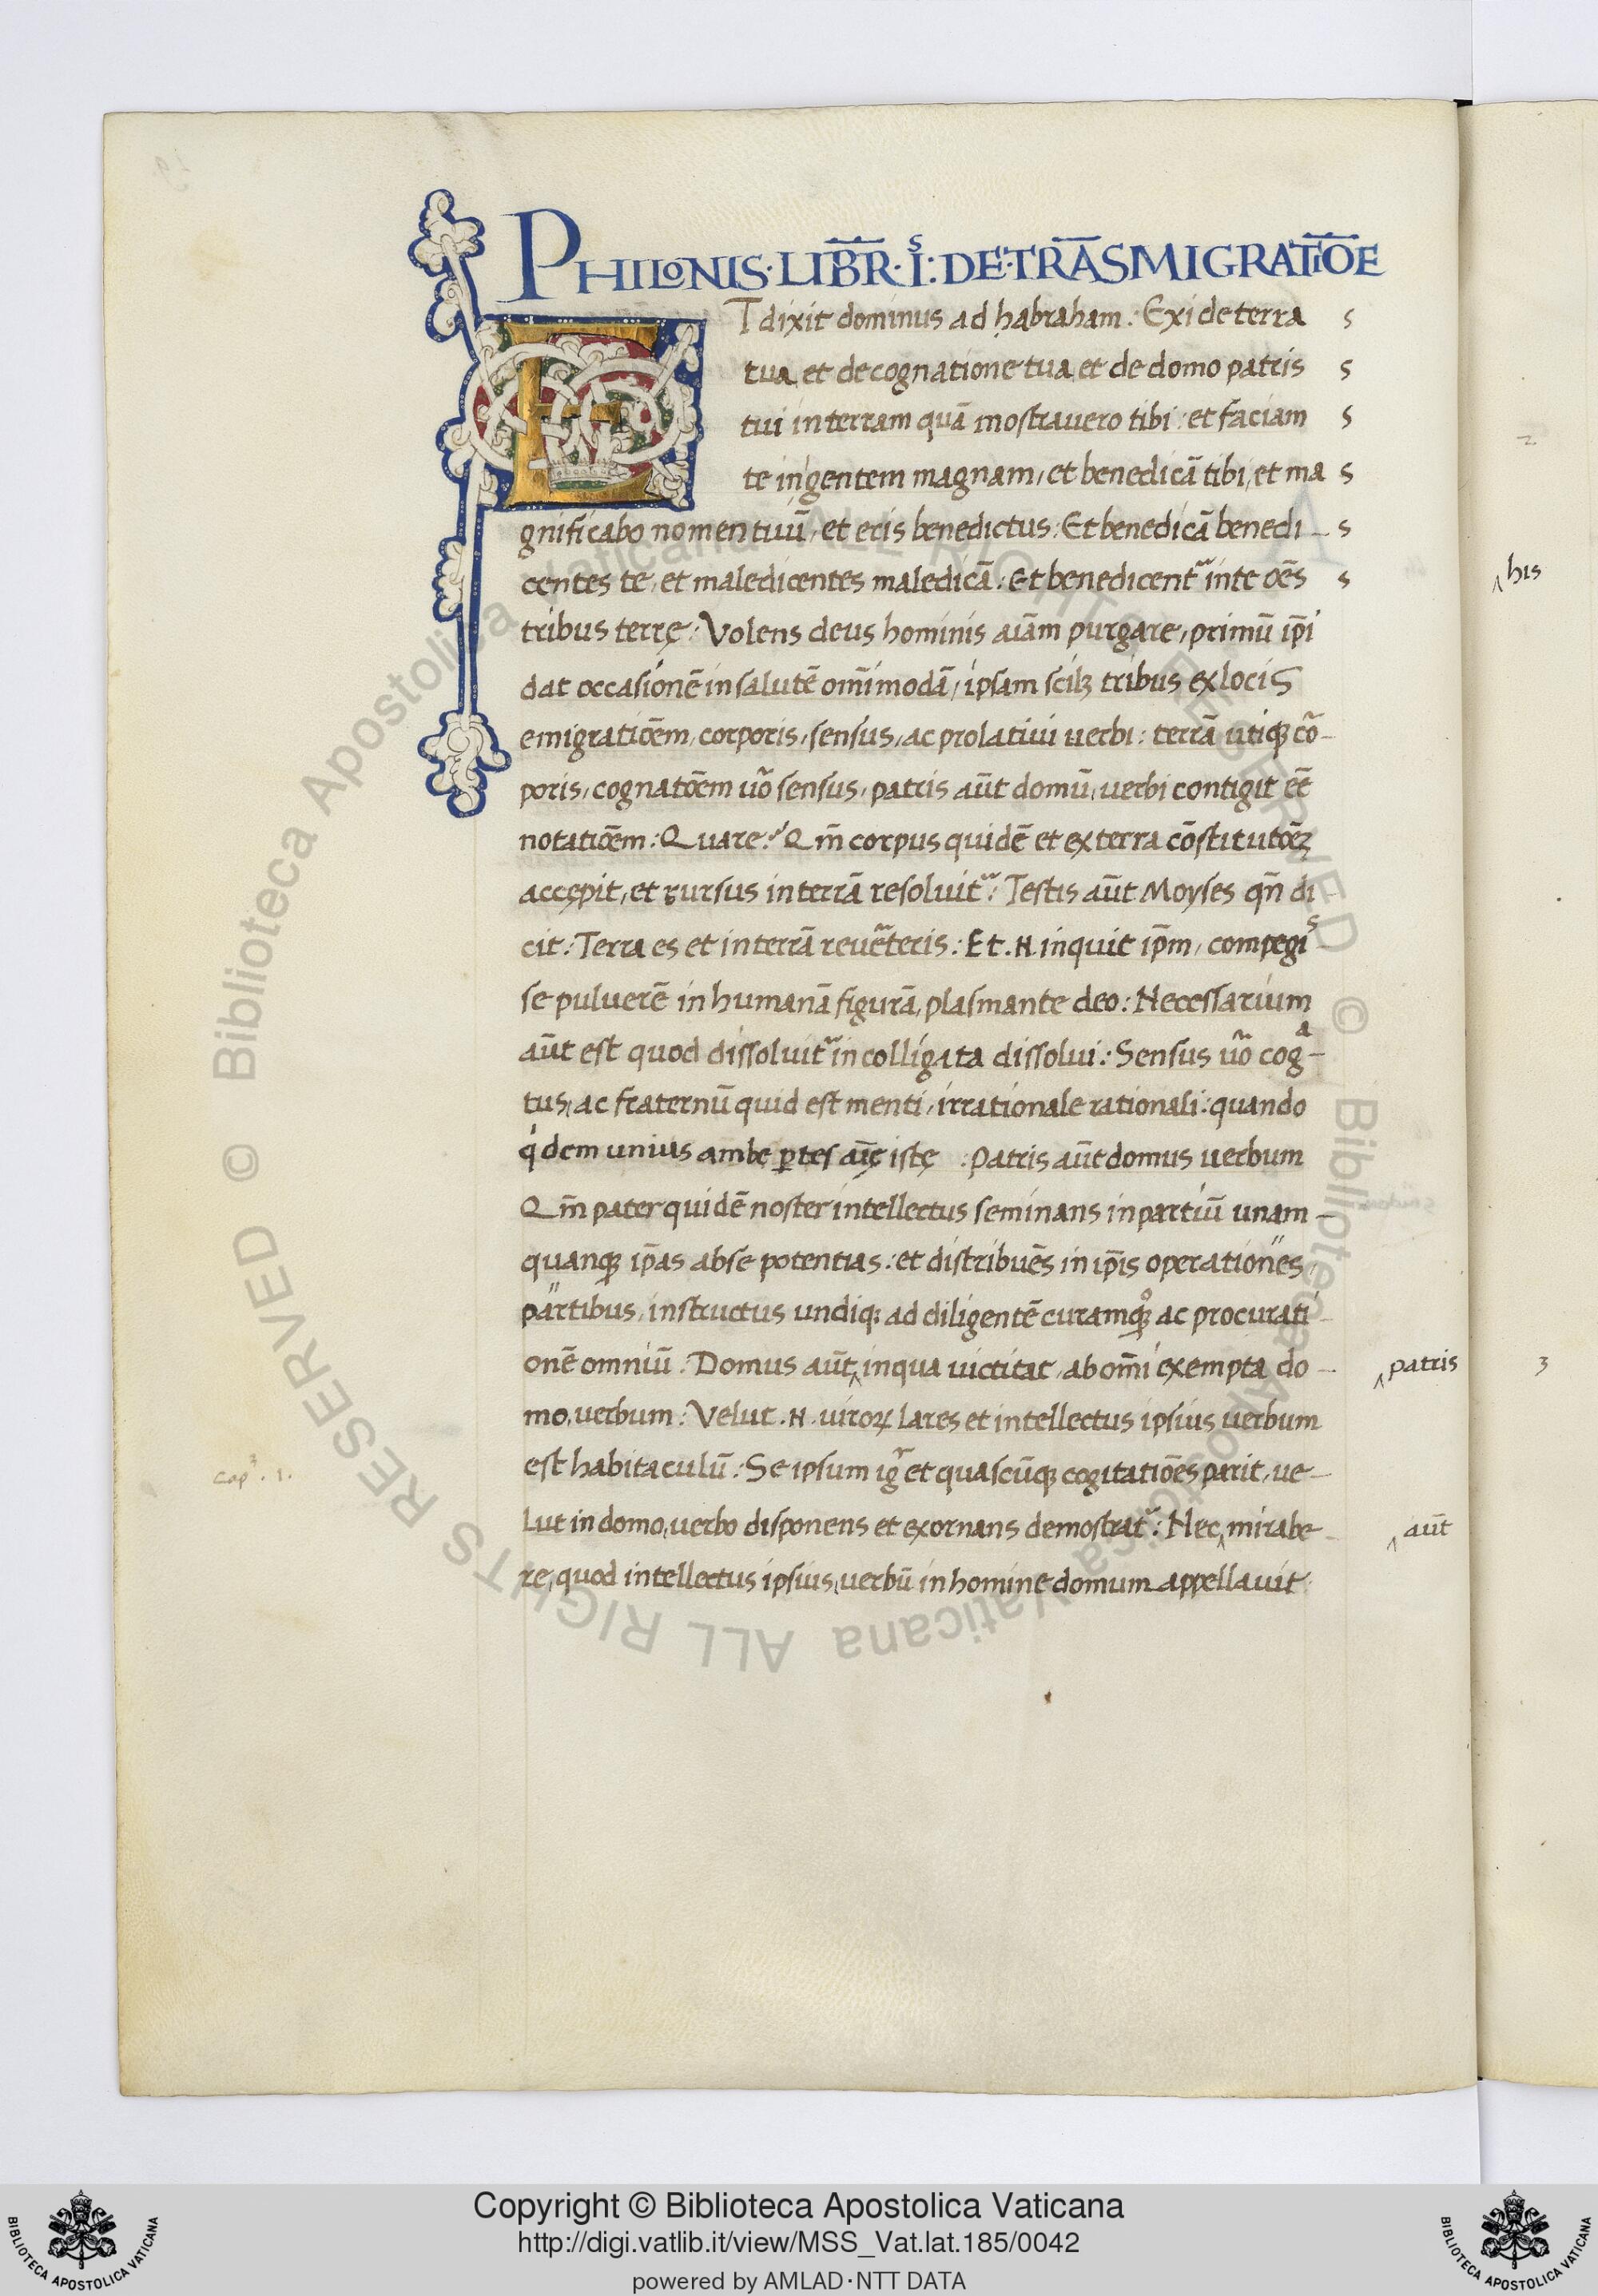 PHILONIS · LIBR̄ · I̊ˢ: DE · TRĀSMIGRATIŌE
ET dixit dominus ad habraham: Exi de terra s
tua et de cognatione tua et de domo patris s
tui in terram quā mostrauero tibi: et faciam s
te in gentem magnam, et benedicā tibi, et ma s
gnificabo nomen tuū, et eris benedictus: Et benedicā benedi- s
centes te, et maledicentes maledicā: Et benedicentʳ in te oēs s
tribus terrę: Volens deus hominis aīam purgare, primū ip̄i
dat occasionē in salutē om̄imodā, ipsam scilꝫ tribus ex locis
emigratiōem, corporis, sensus, ac prolatiui uerbi: terrā utiqꝫ cōr-
poris, cognatōem uō sensus, patris aūt domū, uerbi contigit eē
notatiōem: Quare? Qm̄ corpus quidē et ex terra cōstitutōeꝫ
accępit, et rursus in terrā resoluitʳ: Testis aūt Moyses qn̄ di-
cit: Terra es et in terrā reuerteris: Et .N. inquit ip̄m, compegis-
se puluerē in humanā figurā, plasmante deo: Necessarium
aūt est quod dissoluitʳ in colligata dissolui: Sensus uō cogᵃ-
tus, ac fraternū quid est menti, irrationale rationali: quando
qⁱdem unius ambe ꝑtes aīę istę: Patris aūt domus uerbum
Qm̄ pater quidē noster intellectus seminans in partiū unam-
quanqꝫ ip̄as ab se potentias: et distribuēs in ip̄is operationes,
partibus, instructus undiqꝫ ad diligentē curamqꝫ ac procurati-
onē omniū: Domus aūt ‸ in qua uictitat, ab om̄i exempta do- ‸ patris
mo, uerbum: Velut .N. uiroꝝ lares et intellectus ipsius uerbum
est habitaculū: Se ipsum igʳ et quascūqꝫ cogitatiōes parit, ue-
Cap̄ . 1.
lut in domo, uerbo disponens et exornans demostratʳ: Nec ‸ mirabe- ‸ aūt
re, quod intellectus ipsius, uerbū in homine domum appellauit
‸ his
2
3
© Biblioteca Apostolica Vaticana ALL RIGHTS RESERVED © Biblioteca Apostolica Vaticana ALL RIGHTS RESERVED
Copyright © Biblioteca Apostolica Vaticana
http://digi.vatlib.it/view/MSS_Vat.lat.185/0042
powered by AMLAD·NTT DATA
BIBLIOTECA APOSTOLICA VATICANA
BIBLIOTECA APOSTOLICA VATICANA